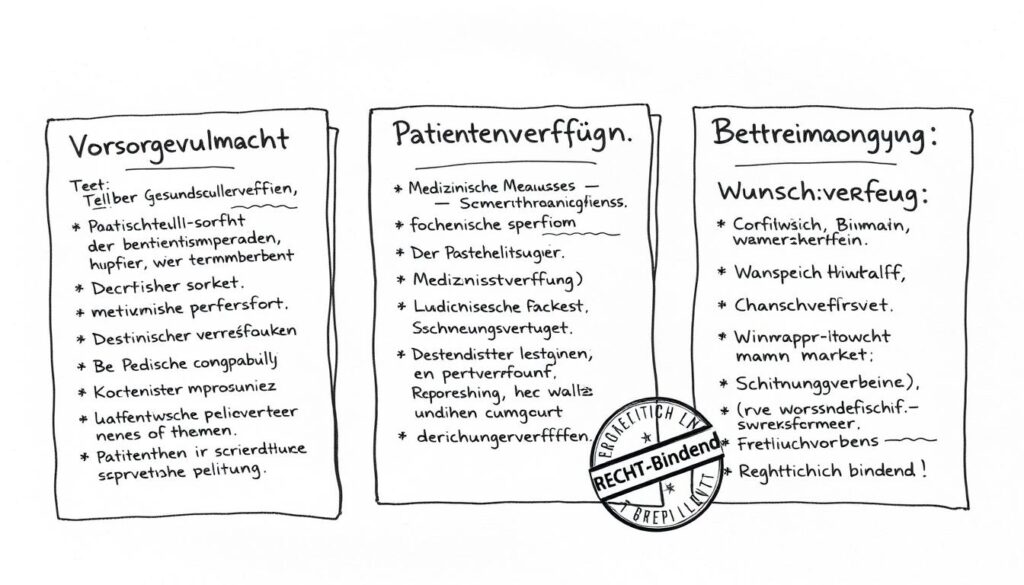 Vorsorgevulmacht
Teet:
Tellber Gesundscullerveffien,
* Paatischteull-sorfht
der bentientismperaden,
hupfier, wer termmberbent
* Decrtisher sorket.
* metivumishe perfersfort.
* Destinischer verresfouken
* Be Pedische congpabully
* Koctenister mprosuniez
* Laffentwsche pelicverteer
nenes of themen.
* Patitenthen ir scrierdtiuce
ssprvetishe pelitung.
Patientenverffügn.
* Medizinische Meausses —
— Scmerrithroanicgfienss.
* fochenische sperfiom
* Der Pastehelitsugier.
* Medizinisstverffung)
* Ludichisesche fackest,
Sschneungsvertuget.
* Destendistter lestginen,
en pertverfounf,
Reporeshing, hec walls
undihen cumgourt
* derichungerverfffffen.
Bettreimaongyng:
Wunsch:verfeug:
* Corfilwsich, Biwmain,
wamerzherffein.
* Wanspeich Hiwtalff,
* Chanschvefirsvet.
* Winwappr-itowcht
mamn market:
* Schitnunggverbeine),
* (rve worssndefischif.–
swreksformeer.
* Fretliuchvorbens
* Reghttichich bindend!
RECHT-Bindend